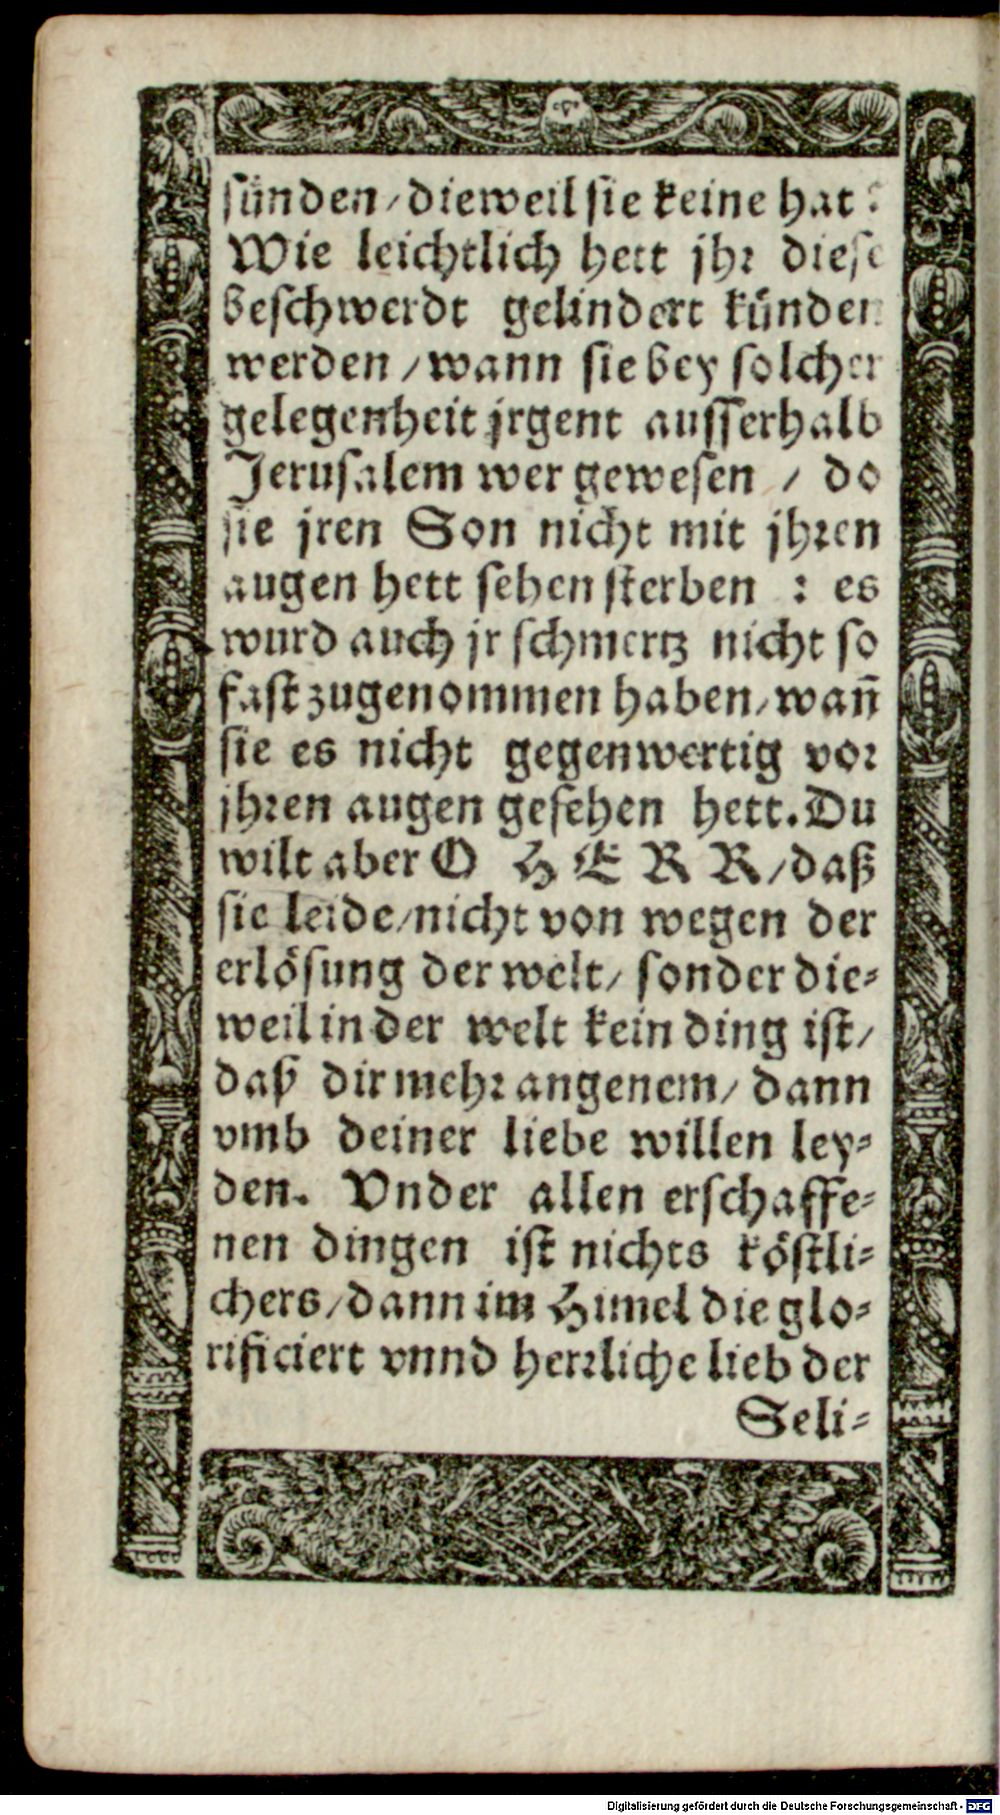 sünden / dieweil sie keine hat?
Wie leichtlich hett jhr diese
beschwerdt gelindert künden
werden / wann sie bey solcher
gelegenheit jrgent ausserhalb
Jerusalem wer gewesen / do
sie jren Son nicht mit jhren
augen hett sehen sterben : es
wurd auch jr schmertz nicht so
fast zugenommen haben / wañ
sie es nicht gegenwertig vor
jhren augen gesehen hett. Du
wilt aber O HERR / daß
sie leide / nicht von wegen der
erlösung der welt / sonder die-
weil in der welt kein ding ist /
daß dir mehr angenem / dann
vmb deiner liebe willen ley-
den. Vnder allen erschaffe-
nen dingen ist nichts köstli-
chers / dann im Himel die glo-
rificiert vnnd herrliche lieb der
Seli-
Digitalisierung gefördert durch die Deutsche Forschungsgemeinschaft - DFG